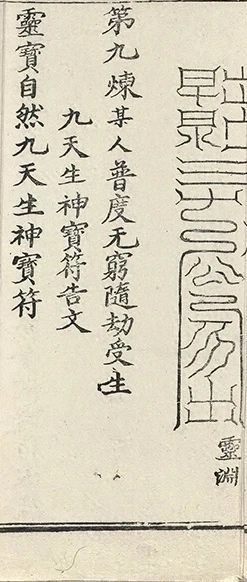 靈淵
第九煉某人普度无窮隨劫受生
九天生神寶符告文
靈寶自然九天生神寶符